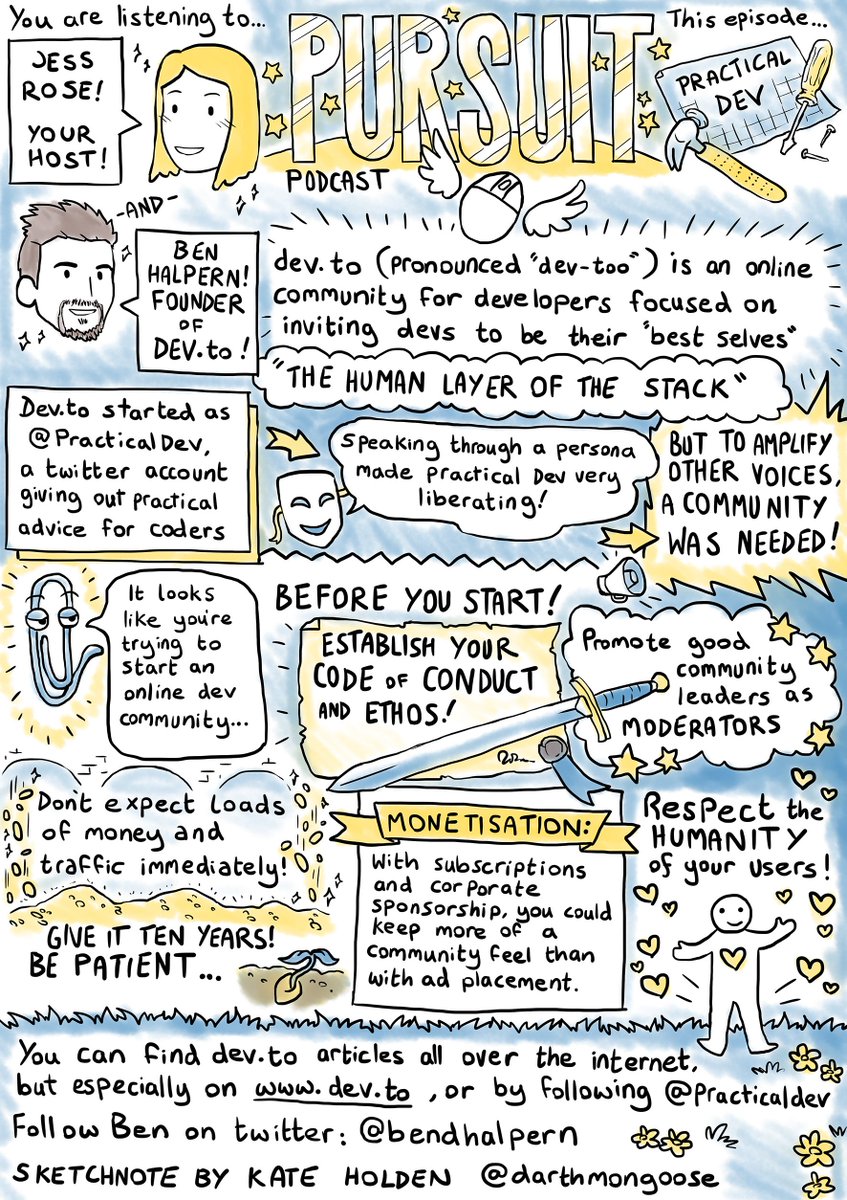 You are listening to...
PURSUIT
PODCAST
This episode...
PRACTICAL
DEV
JESS
ROSE!
YOUR
HOST!
-AND-
BEN
HALPERN!
FOUNDER
OF
DEV.to!
dev.to (pronounced "dev-too") is an online
community for developers focused on
inviting devs to be their "best selves"
"THE HUMAN LAYER OF THE STACK"
Dev.to started as
@PracticalDev,
a twitter account
giving out practical
advice for coders
Speaking through a persona
made Practical Dev very
liberating!
BUT TO AMPLIFY
OTHER VOICES,
A COMMUNITY
WAS NEEDED!
It looks
like you're
trying to
start an
online dev
community...
BEFORE YOU START!
ESTABLISH YOUR
CODE OF CONDUCT
AND ETHOS!
Promote good
community
leaders as
MODERATORS
Don't expect loads
of money and
traffic immediately!
GIVE IT TEN YEARS!
BE PATIENT...
MONETISATION:
With subscriptions
and corporate
sponsorship, you could
keep more of a
community feel than
with ad placement.
Respect the
HUMANITY
of your users!
You can find dev.to articles all over the internet,
but especially on www.dev.to, or by following @Practicaldev
Follow Ben on twitter: @bendhalpern
SKETCHNOTE BY KATE HOLDEN @darthmongoose